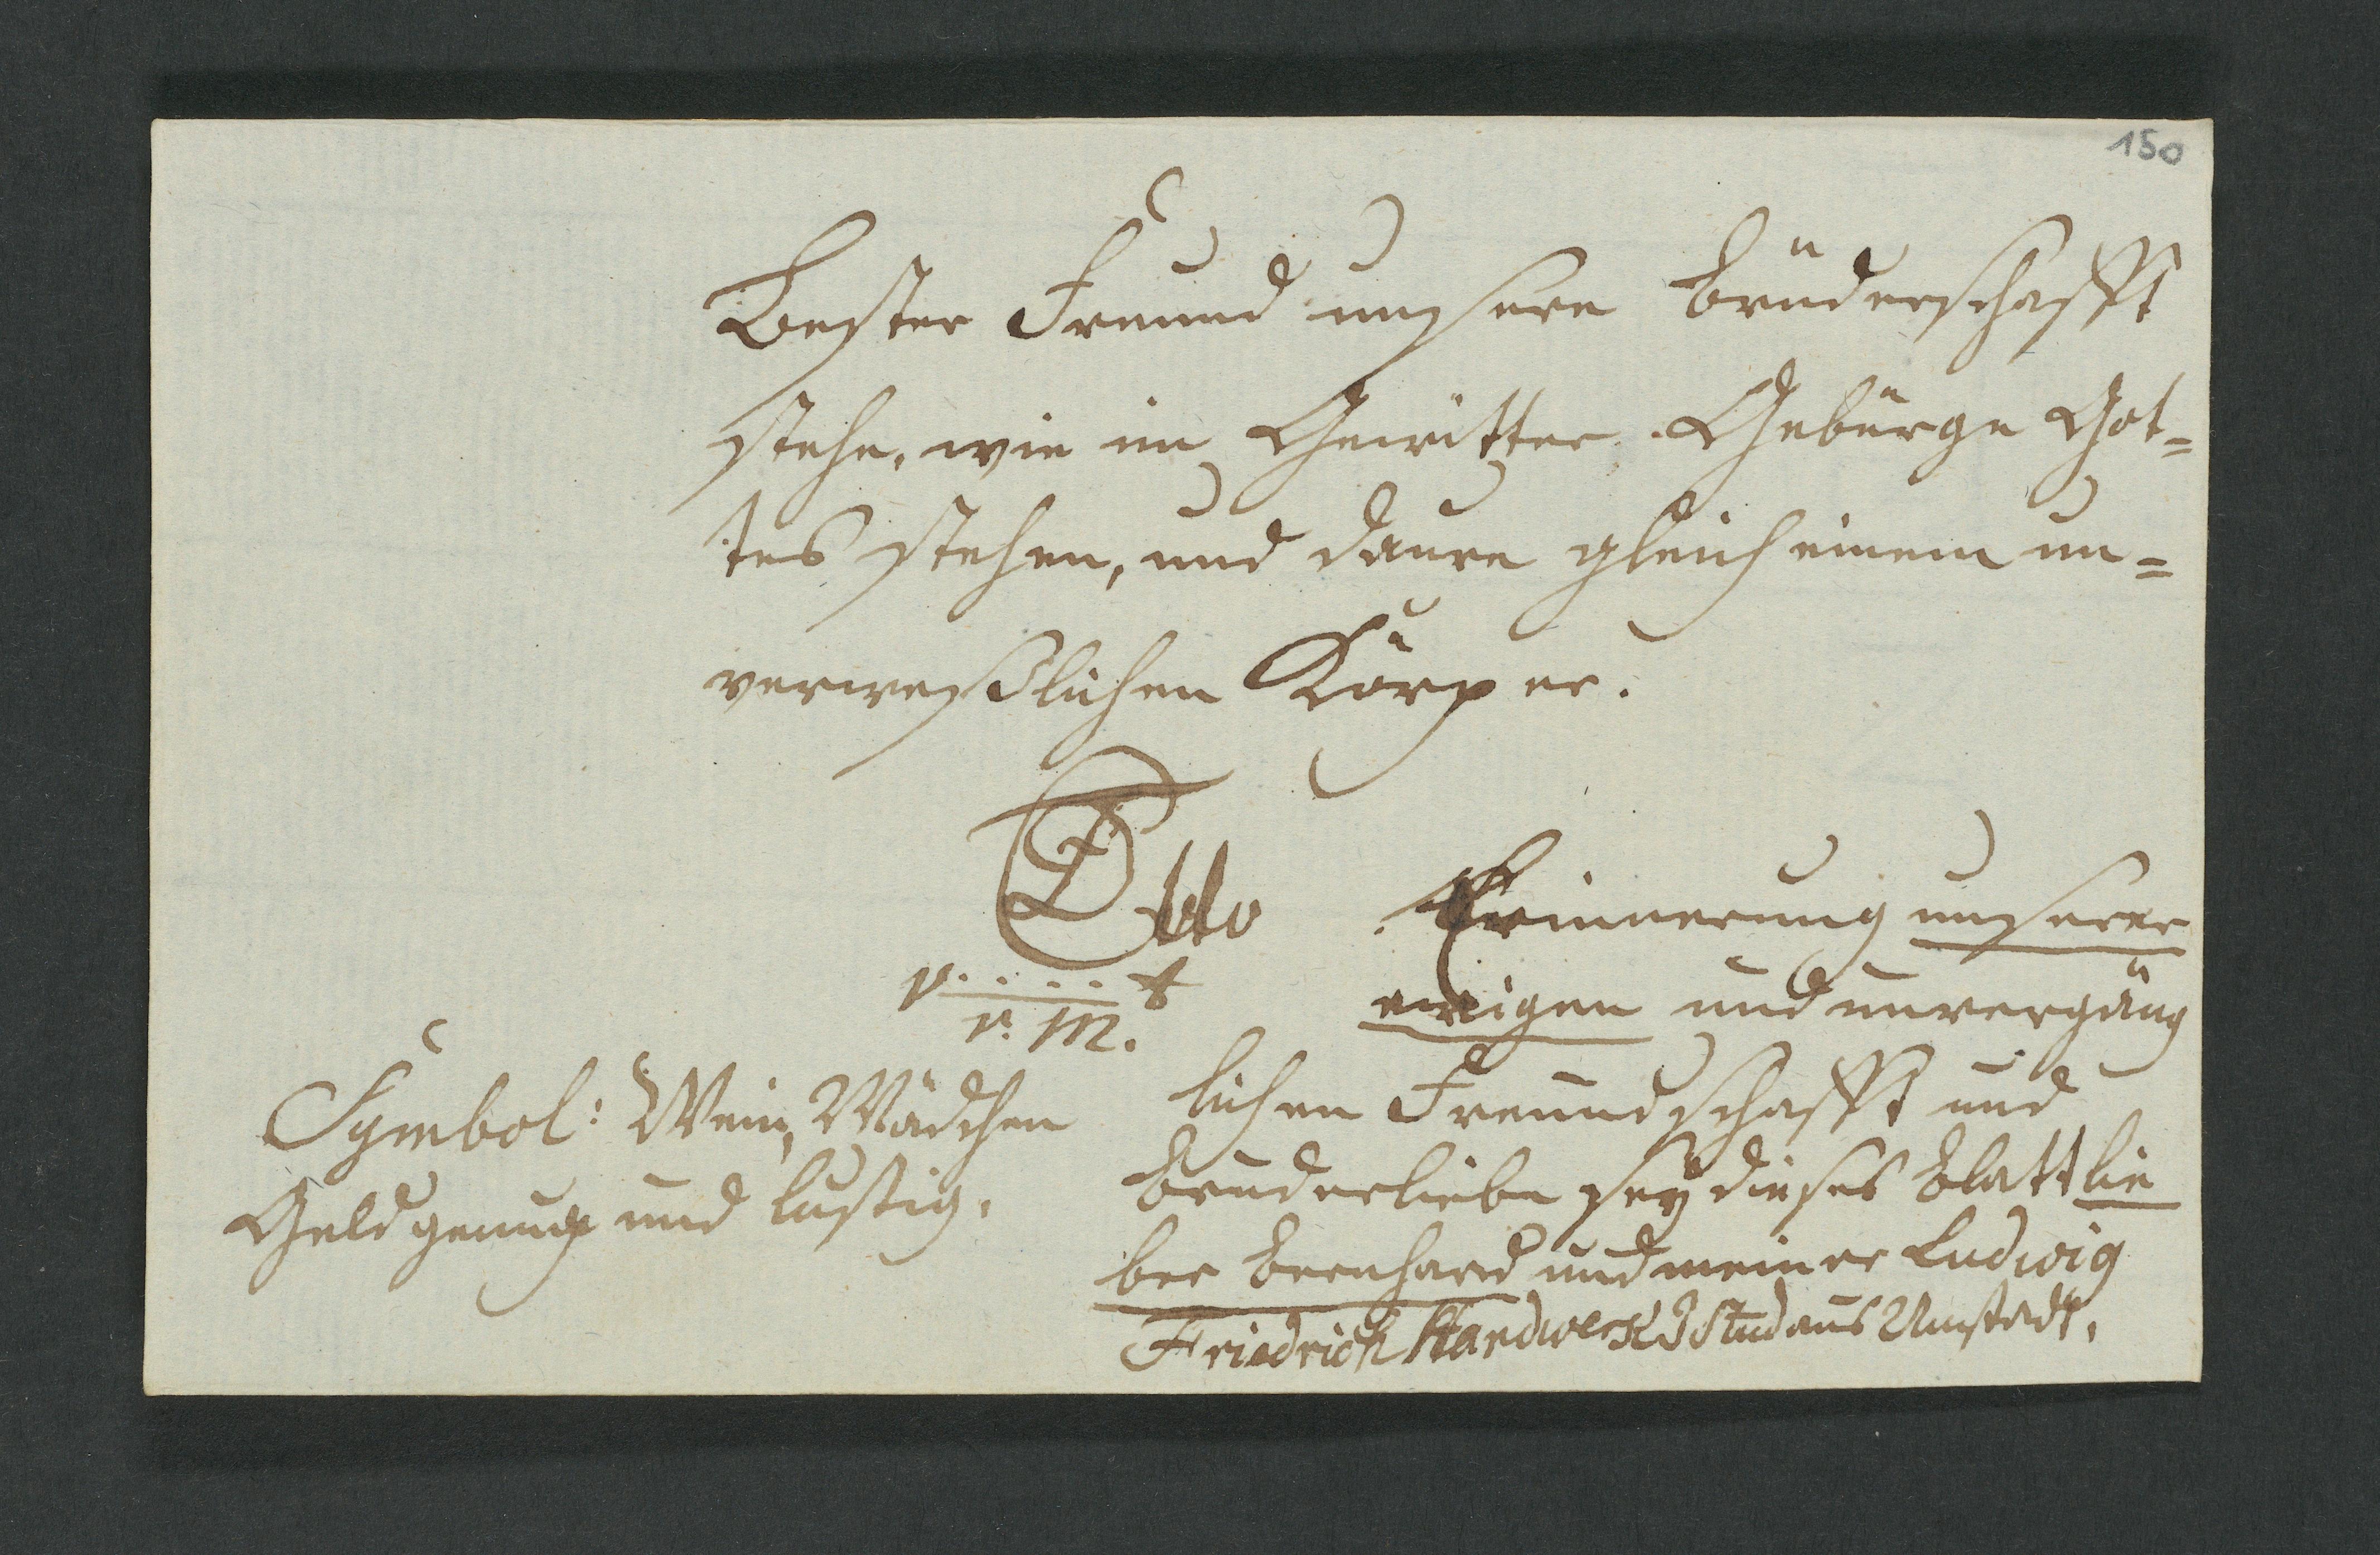 150
Bester Freund unsere Brüderschafft
stehe, wie im Gewitter Gebürge Got=
tes stehen, und daure gleich einem un=
verweßlichen Körper.
v. . . . . t
v. M.
Symbol: Wein, Mädchen
Geld genug und lustig.
Erinnerung unserer
ewigen und unvergäng
lichen Freundschafft und
Bruderliebe sey dieses Blatt lie
ber Bernhard und meiner Ludwig
Friedrich Handwerk J Stud aus Umstadt.